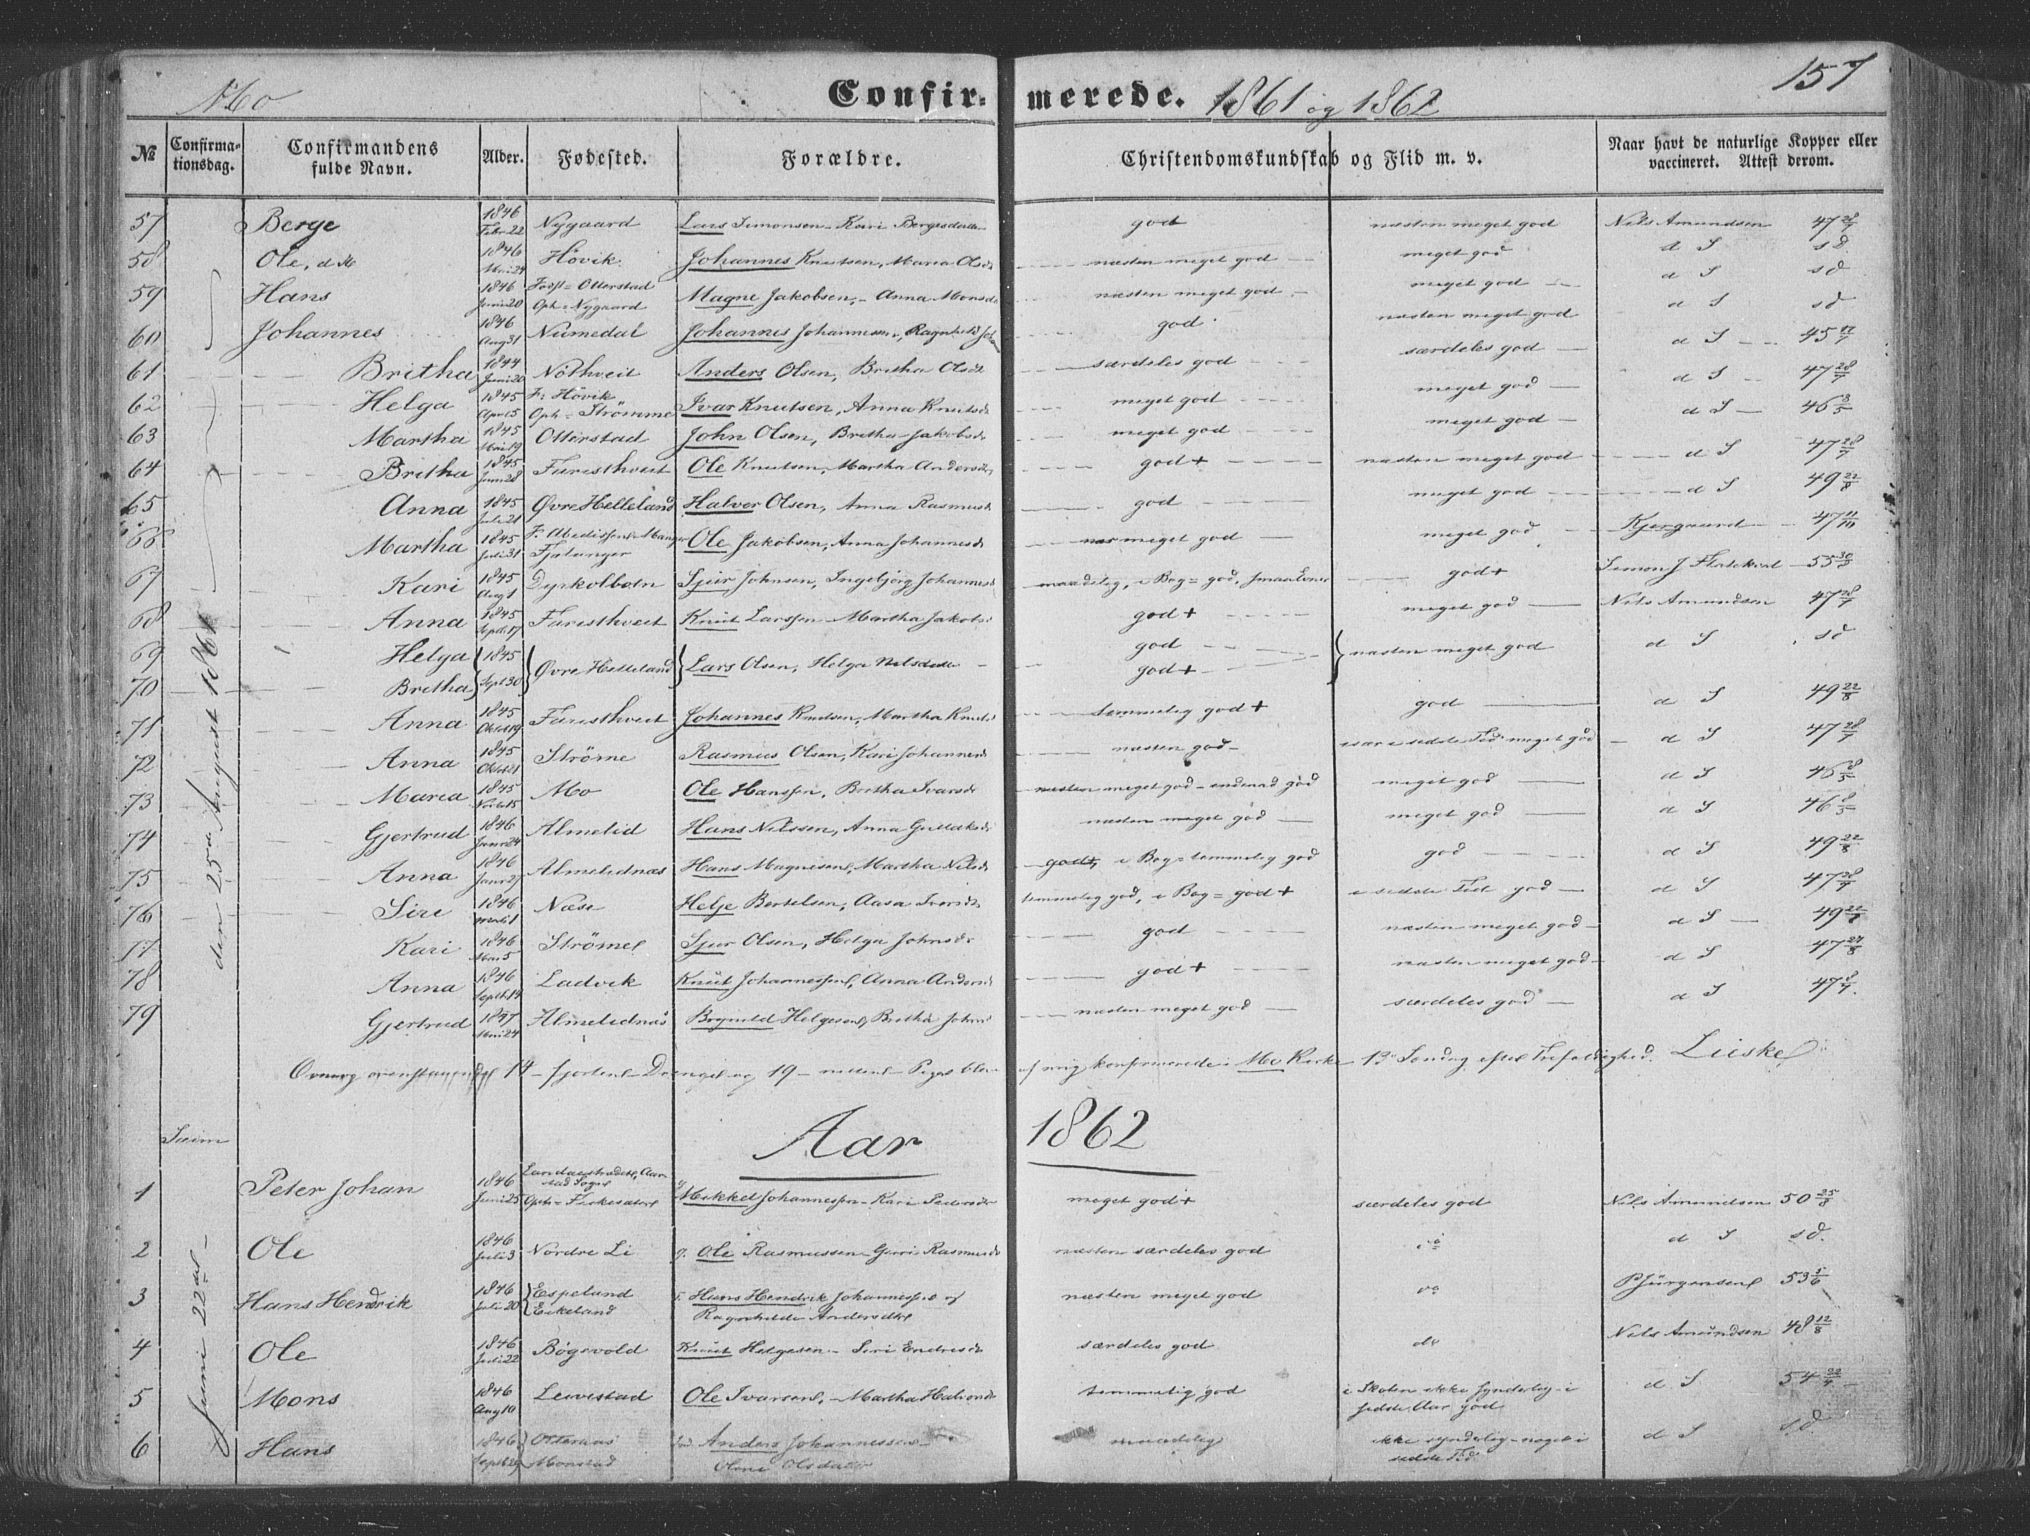 Mo Confirmerede. 1861 og 1862 157
№ Confirmationsdag. Confirmandens fulde Navn. Alder. Fødested. Forældre. Christendomskundskab og Flid m. v. Naar havt de naturlige Kopper eller vaccineret. Attest derom.
57 Berge 1846 Febr 22 Nygaard Lars Simonsen - Kari Bergesdatter god næsten meget god Nils Amundsen 47 28/7
58 Ole, d M 1846 Mai 24 Hövik Johannes Knutsen, Maria Olsdr næsten meget god meget god d S sd
59 Hans 1846 Juni 20 Födst = Otterstad Oph = Nygaard Magne Jakobsen, - Anna Monsdr næsten meget god meget god d S sd
60 Johannes 1846 Aug 31 Numedal Johannes Johannessen, Ragnhild god næsten meget god d S sd
61 Britha 1844 Juni 20 Nöthveit Anders Olsen, Britha Olsdr særdeles god særdeles god d S 45 17/7
62 Helga 1845 Apr 5 F: Hövik Oph = Strömme Ivar Knutsen, Anna Knutsdr meget god meget god d S 47 28/7
63 Martha 1845 Mai 19 Otterstad John Olsen, Britha Jakobsdr meget god meget god d S 46 8/5
64 Britha 1845 Juni 28 Faresthveit Ole Knutsen, Martha Andersdr god + næsten meget god d S 47 28/7
65 Anna 1845 Juli 21 Øvre Helleland Halvor Olsen, Anna Rasmusdr god meget god d S 49 22/8
66 Martha 1845 Juli 31 Fjelanger Ole Jakobsen, Anna Johannesdr meget god meget god Kjergaard 47 11/10
67 Kari 1845 Aug 1 Dyrkolbotn Sjur Johnsen, Ingebjörg Johannesdr maadelig, i Bog = god, god + Simon J 55 30/5
68 Anna 1845 Septb 17 Faresthveit Knut Larssen - Martha Jakobsdr god + meget god Nils Amundsen 47 28/7
69 Helga 1845 god
70 Britha Septb 30 Øvre Helleland Lars Olsen, Helga Nilsdatter god + næsten meget god d S sd
71 Anna 1845 Oktob 19 Faresthveit Johannes Knutsen, Martha Knutsdr temmelig god + god d S 49 22/8
72 Anna 1845 Oktob 21 Ströme Rasmus Olsen, Kari Johannesdr næsten god - især i sidste Tid meget god d S 47 28/7
73 Maria 1845 Novb 15 Mo Ole Hanssen, Britha Ivarsdr næsten meget god - endend god meget god d S 46 8/5
74 Gjertrud 1846 Janr 24 Almelid Hans Nilssen, Anna næsten meget god meget god d S 46 8/5
75 Anna 1846 Janr 27 Almelidnæs Hans Magnesen, Martha Nilsdr god +, i Bog = temmelig god god d S 49 22/8
76 Siri 1846 Næse Helje Bertelsen, Aasa Iversdr temmelig god, i Bog = god + i sidste Tid god d S 47 28/7
77 Kari 1846 Mai 5 Strömel Sjur Olsen, Helga Johnsdr god næsten meget god d S 49 22/8
78 Anna 1846 Septb 14 Ladvik Knut Johannessen, Anna Andersdr god + næsten meget god d S 47 27/8
79 Gjertrud 1847 Mai 24 Almelidnäs Bryniild Helgesen, Britha Johnsdr næsten meget god særdeles god d S 47 8/7
den 25de August 1861
14 - fjorten - Drenge og 19 - nitten - Piger blev af mig konfirmerede i Mo Kirke 13 Söndag efter Trefoldighed. Lieske
Aar 1862
Sæim
1 Peter Johan 1846 Juni 25 Mikkel Johannessen - Kari Pedersdr meget god + særdeles god Nils Amundsen 50 25/8
2 Ole 1846 Juli 3 Nordre Li g. Ole Rasmussen - Rasmusdr næsten særdeles god d S sd.
3 Hans Hendrik 1846 Juli 20 Espeland Eikeland Hans Hendrik Johannessen og Ragnhilde Andersdtr næsten meget god PJürgensen 53 5/6
4 Ole 1846 Juli 22 Bögevold Knut Helgesen - Siri Endresdr særdeles god do Nils Amundsen 48 12/8
5 Mons 1846 Aug 10 Leivestad Ole Ivarsen, - Martha temmelig god i Skolen ikke synderlig - i sidste Aar god d S 54 22/4
6 Hans 1846 Septb Otteraas Monstad Anders Johannessen - Olsdatter maadelig ikke synderlig - noget i sidste Tid d S sd
Juni 22de -